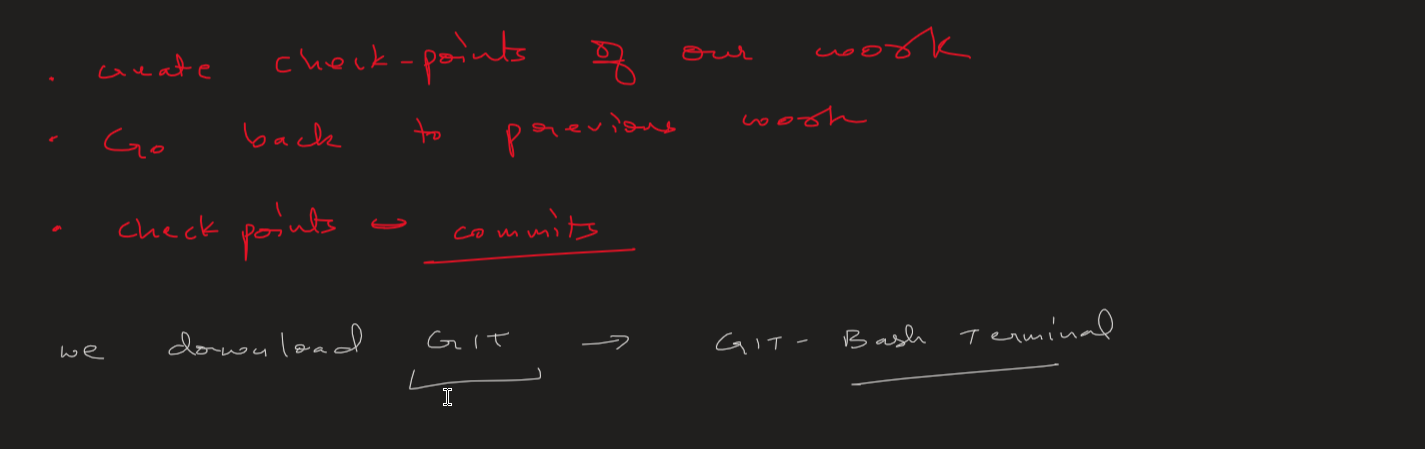 • create check-points of our work
• Go back to previous work
• check points ↔ commits
we download GIT → GIT - Bash Terminal